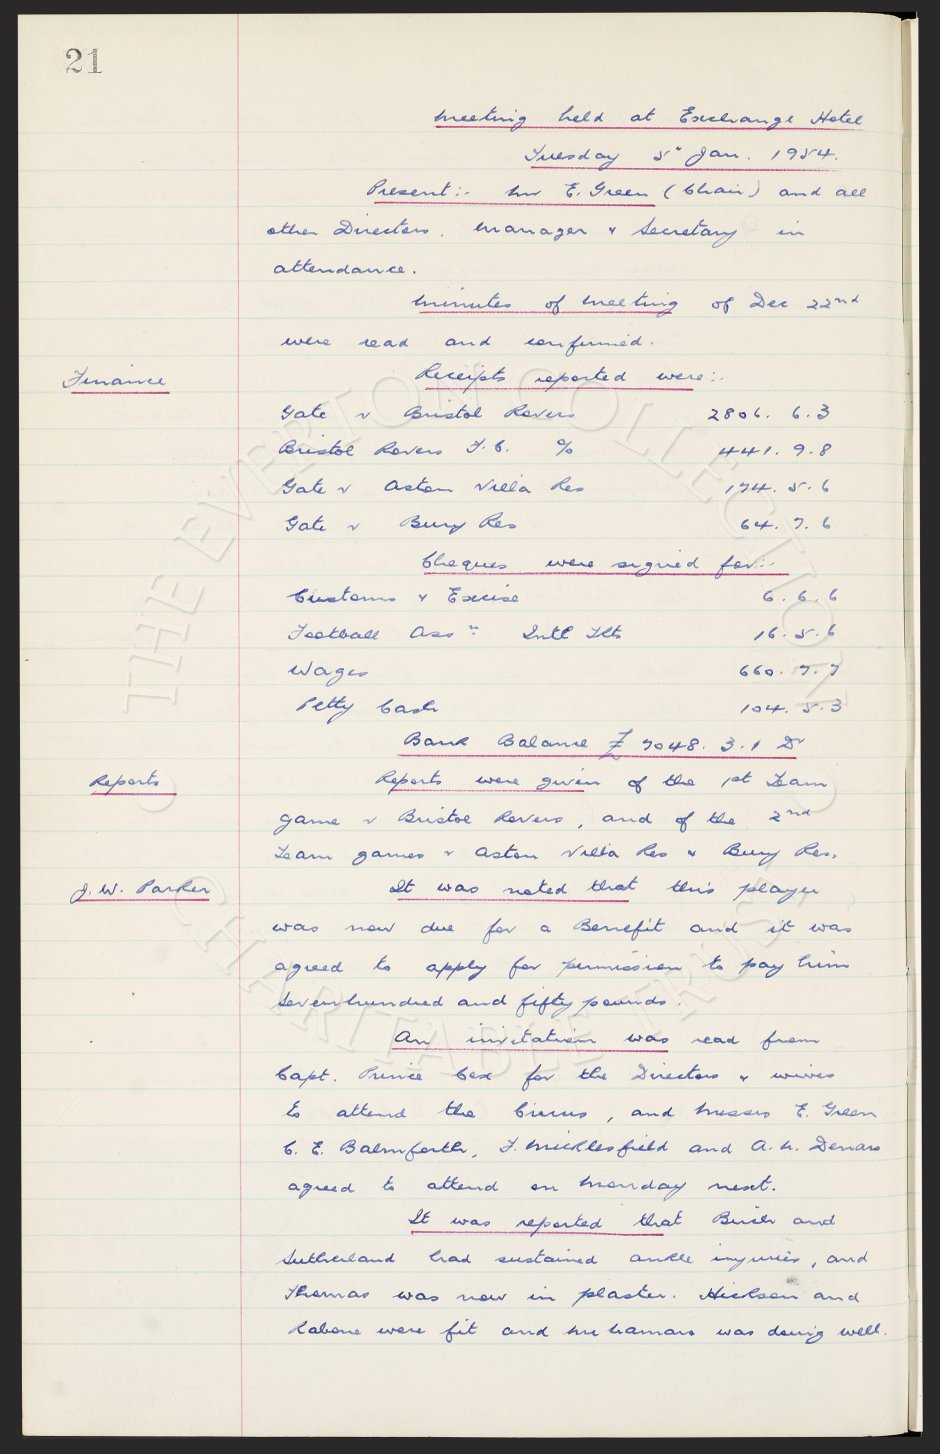 21
Meeting held at Exchange Hotel
Tuesday 5" Jan. 1954.
Present:- Mr E. Green (Chair) and all
other Directors. Manager & Secretary in
attendance.
Minutes of Meeting of Dec 22nd
were read and confirmed.
Finance
Receipts reported were:-
Gate v Bristol Rovers 2806. 6. 3
Bristol Rovers F.C. % 441. 9. 8
Gate v Aston Villa Res 174. 5. 6
Gate v Bury Res 64. 7. 6
Cheques were signed for:-
Customs & Excise 6. 6. 6
Football Assn Intl Tkts 16. 5. 6
Wages 660. 7. 7
Petty Cash 104. 5. 3
Bank Balance £7048. 3. 1 Dr
Reports
Reports were given of the 1st Team
game v Bristol Rovers, and of the 2nd
Team games v Aston Villa Res & Bury Res.
J. W. Parker
It was noted that this player
was now due for a Benefit and it was
agreed to apply for permission to pay him
Seven hundred and fifty pounds.
An invitation was read from
Capt. Prince Cox for the Directors & wives
to attend the Circus, and Messrs E. Green
C. E. Balmforth, F. Micklesfield and A. H. Denaro
agreed to attend on Monday next.
It was reported that Buick and
Sutherland had sustained ankle injuries, and
Thomas was now in plaster. Hickson and
Rabone were fit and McNamara was doing well.
THE EVERTON COLLECTION
CHARITABLE TRUST